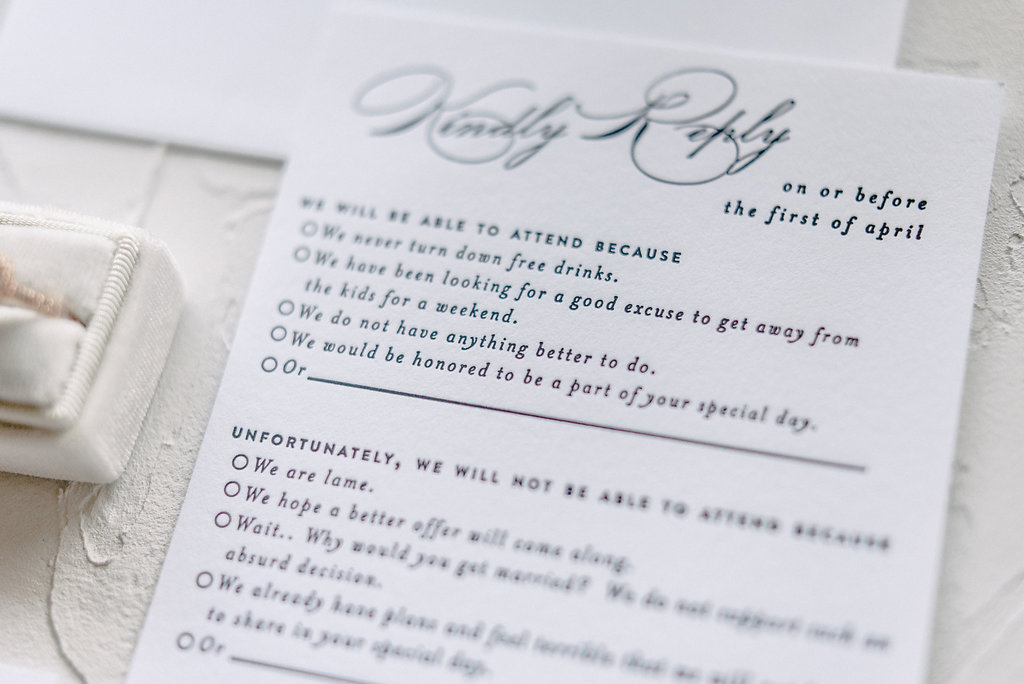 Kindly Reply
on or before
the first of april
WE WILL BE ABLE TO ATTEND BECAUSE
We never turn down free drinks.
We have been looking for a good excuse to get away from
the kids for a weekend.
We do not have anything better to do.
We would be honored to be a part of your special day.
Or
UNFORTUNATELY, WE WILL NOT BE ABLE TO ATTEND BECAUSE
We are lame.
We hope a better offer will come along.
Wait.. Why would you get married? We do not support such an
absurd decision.
We already have plans and feel terrible that we will
to share in your special day.
Or